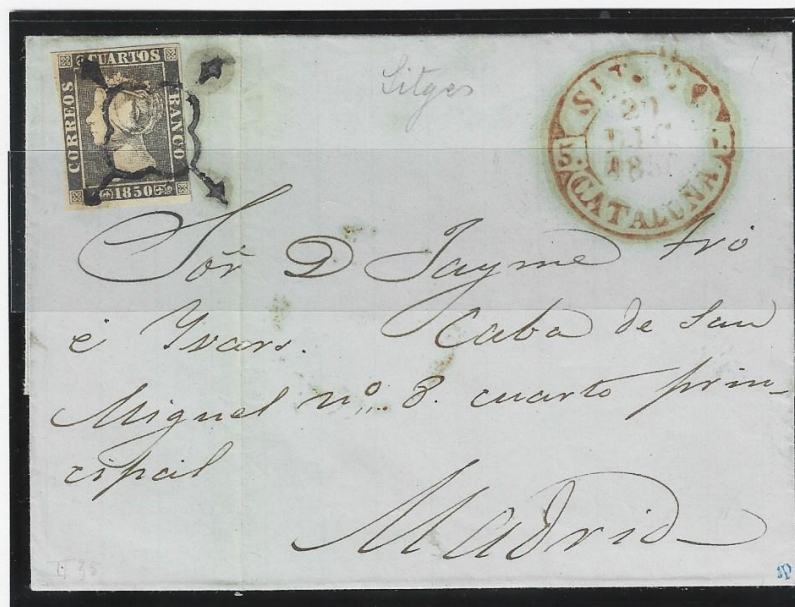 CUARTOS
CORREOS
FRANCO
1850
Sitges
CATALUÑA
Sor D Jayme
é Yvars. Caba de San
Miguel nº 8. cuarto prin-
cipal
Madrid